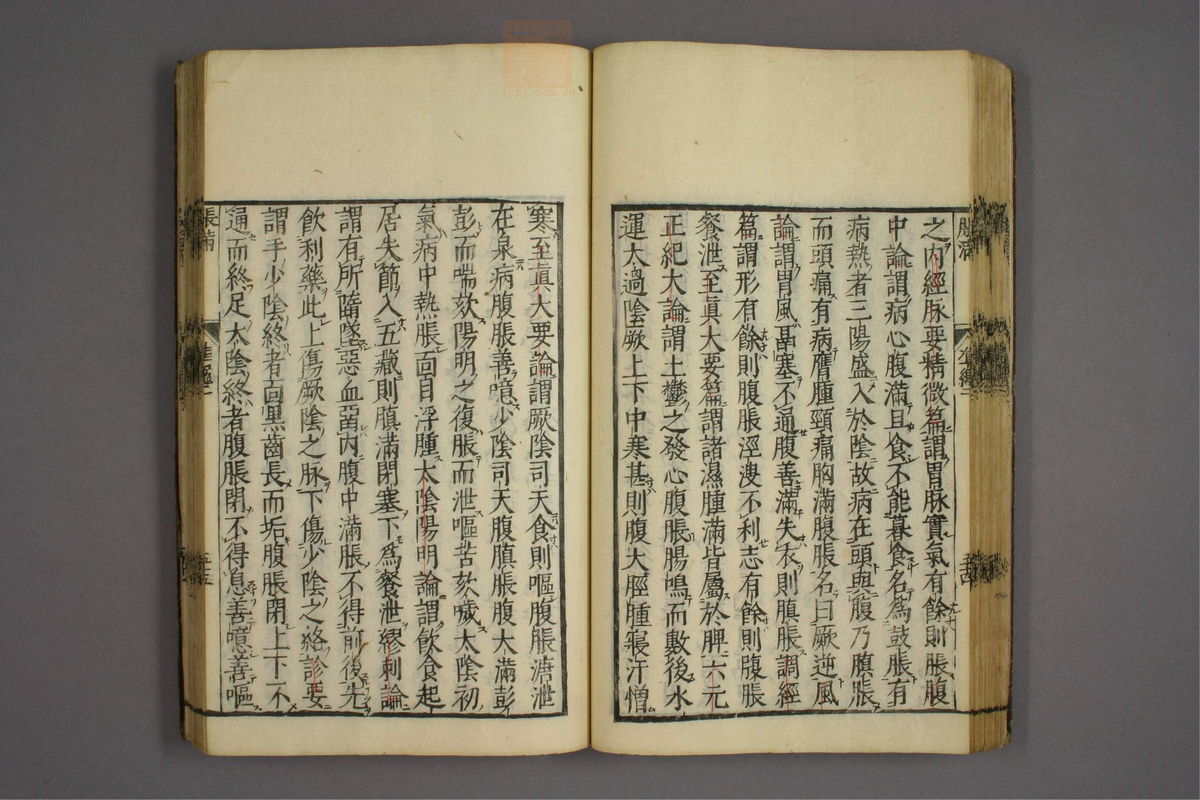 之内經脉要精微篇謂胃脉實氣有餘則脹腹
中論謂病心腹滿旦食不能暮食名為鼓脹有
病熱者三陽盛入於陰故病在頭與腹乃䐜脹
而頭痛有病膺腫頸痛胸滿腹脹名曰厥逆風
論謂胃風鬲塞不通腹善滿失衣則䐜脹調經
篇謂形有餘則腹脹涇溲不利志有餘則腹脹
餐泄至眞大要篇謂諸濕腫滿皆屬於脾六元
正紀大論謂土鬱之發心腹脹腸鳴而數後水
運太過陰厥上下中寒甚則腹大脛腫寢汗憎
寒至眞大要論謂厥陰司天食則嘔腹脹溏泄
在泉病腹脹善噫少陰司天腹䐜脹腹大滿彭
彭而喘欬陽明之復脹而泄嘔苦欬噦太陰初
氣病中熱脹面目浮腫太陰陽明論謂飲食起
居失節入五藏則䐜滿閉塞下為餐泄繆刺論
謂有所隋墜惡血留内腹中滿脹不得前後先
飲利藥此上傷厥陰之脉下傷少陰之絡診要
謂手少陰終者面黑齒長而垢腹脹閉上下不
通而終足太陰終者腹脹閉不得息善噫善嘔
脹滿